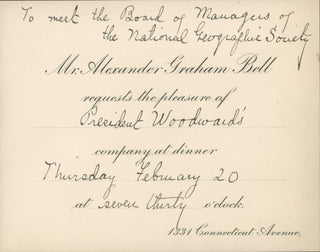 To meet the Board of Managers of
the National Geographic Society
Mr. Alexander Graham Bell
requests the pleasure of
President Woodward's
company at dinner
Thursday February 20
at seven thirty o'clock.
1331 Connecticut Avenue.